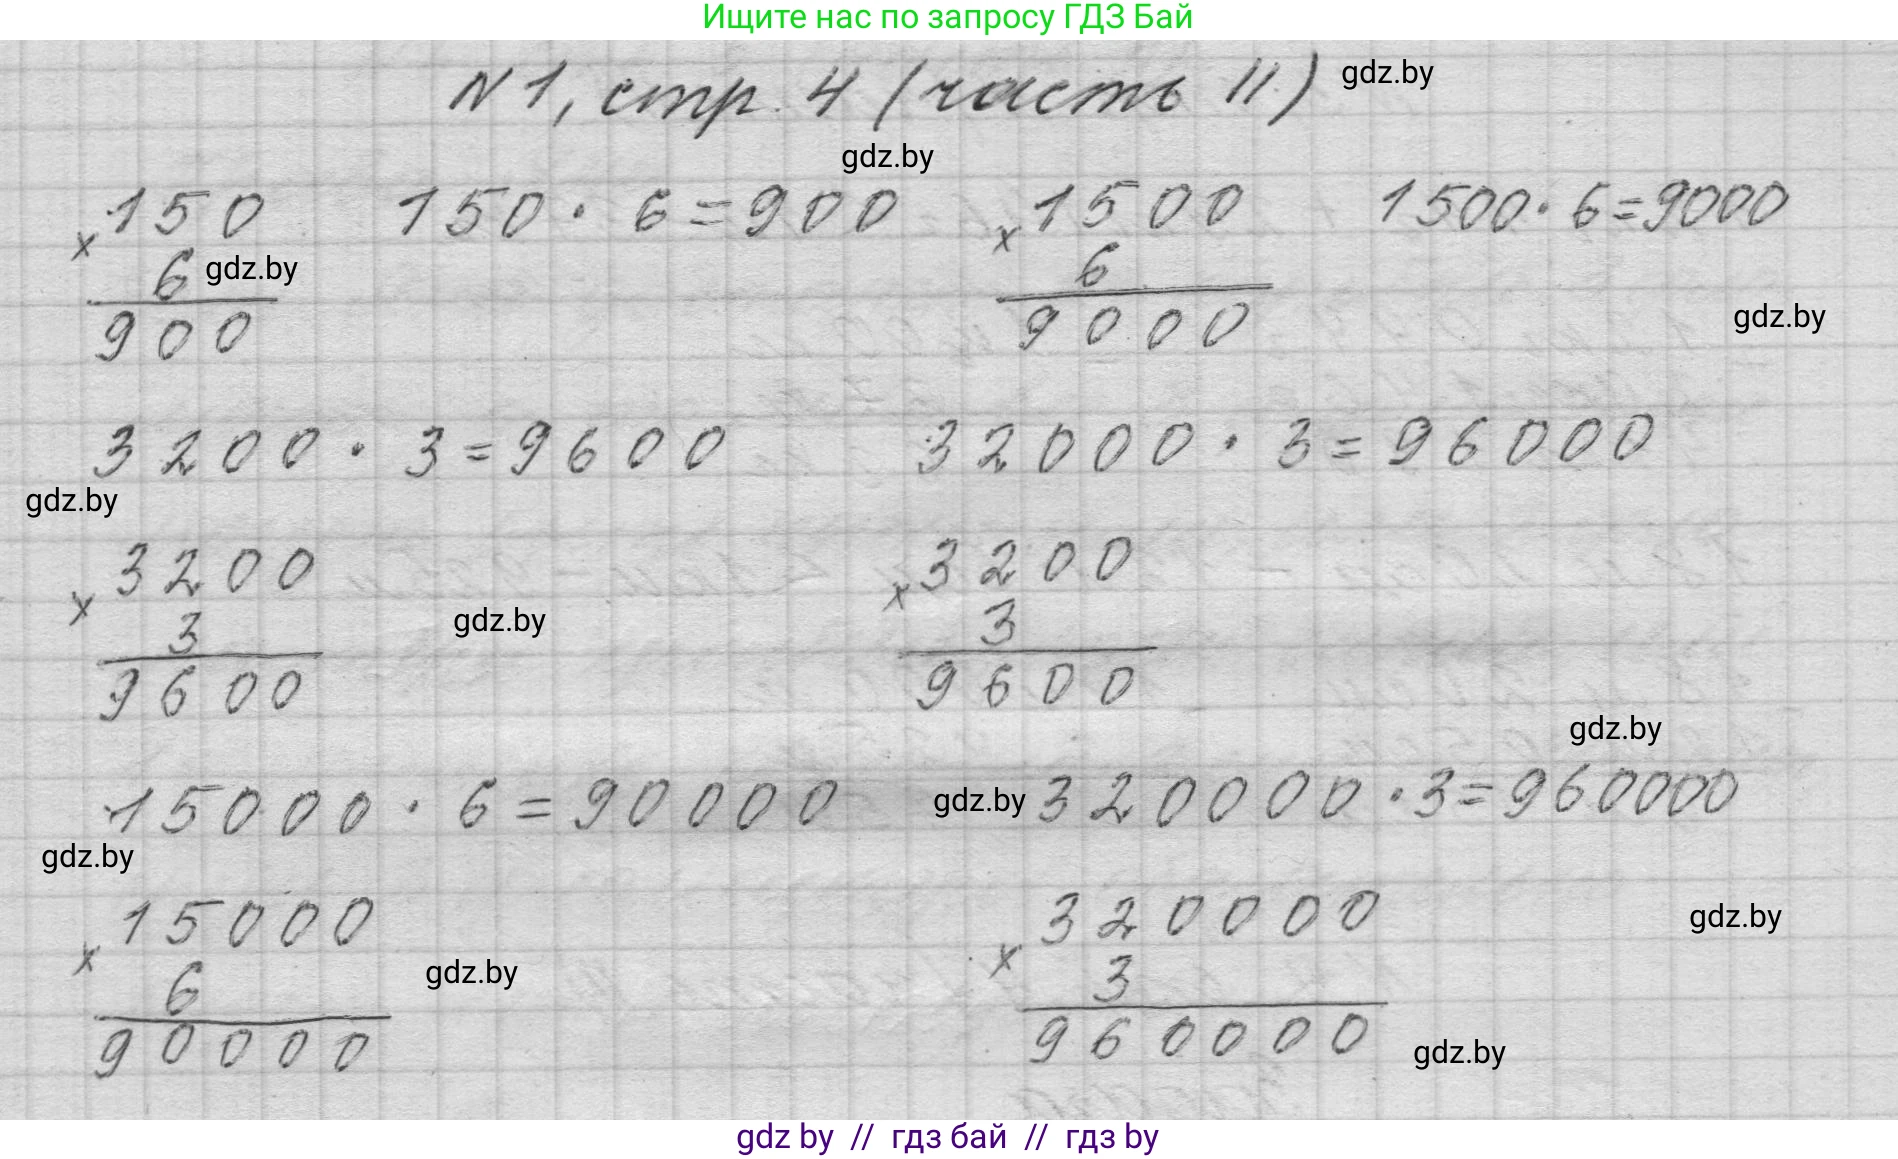 Ищите нас по запросу ГДЗ Бай
N 1, стр. 4 (часть II) gdz.by
gdz.by
150 150 · 6 = 900 1500 1500 · 6 = 9000
x x
6 gdz.by 6
900 9000 gdz.by
3200 · 3 = 9600 32000 · 3 = 96000
gdz.by
3200 3200
x x
3 gdz.by 3
9600 9600
gdz.by
15000 · 6 = 90000 gdz.by 320000 · 3 = 960000
gdz.by
15000 320000 gdz.by
x x
6 gdz.by 3
90000 960000 gdz.by
gdz by // гдз бай // гдз by